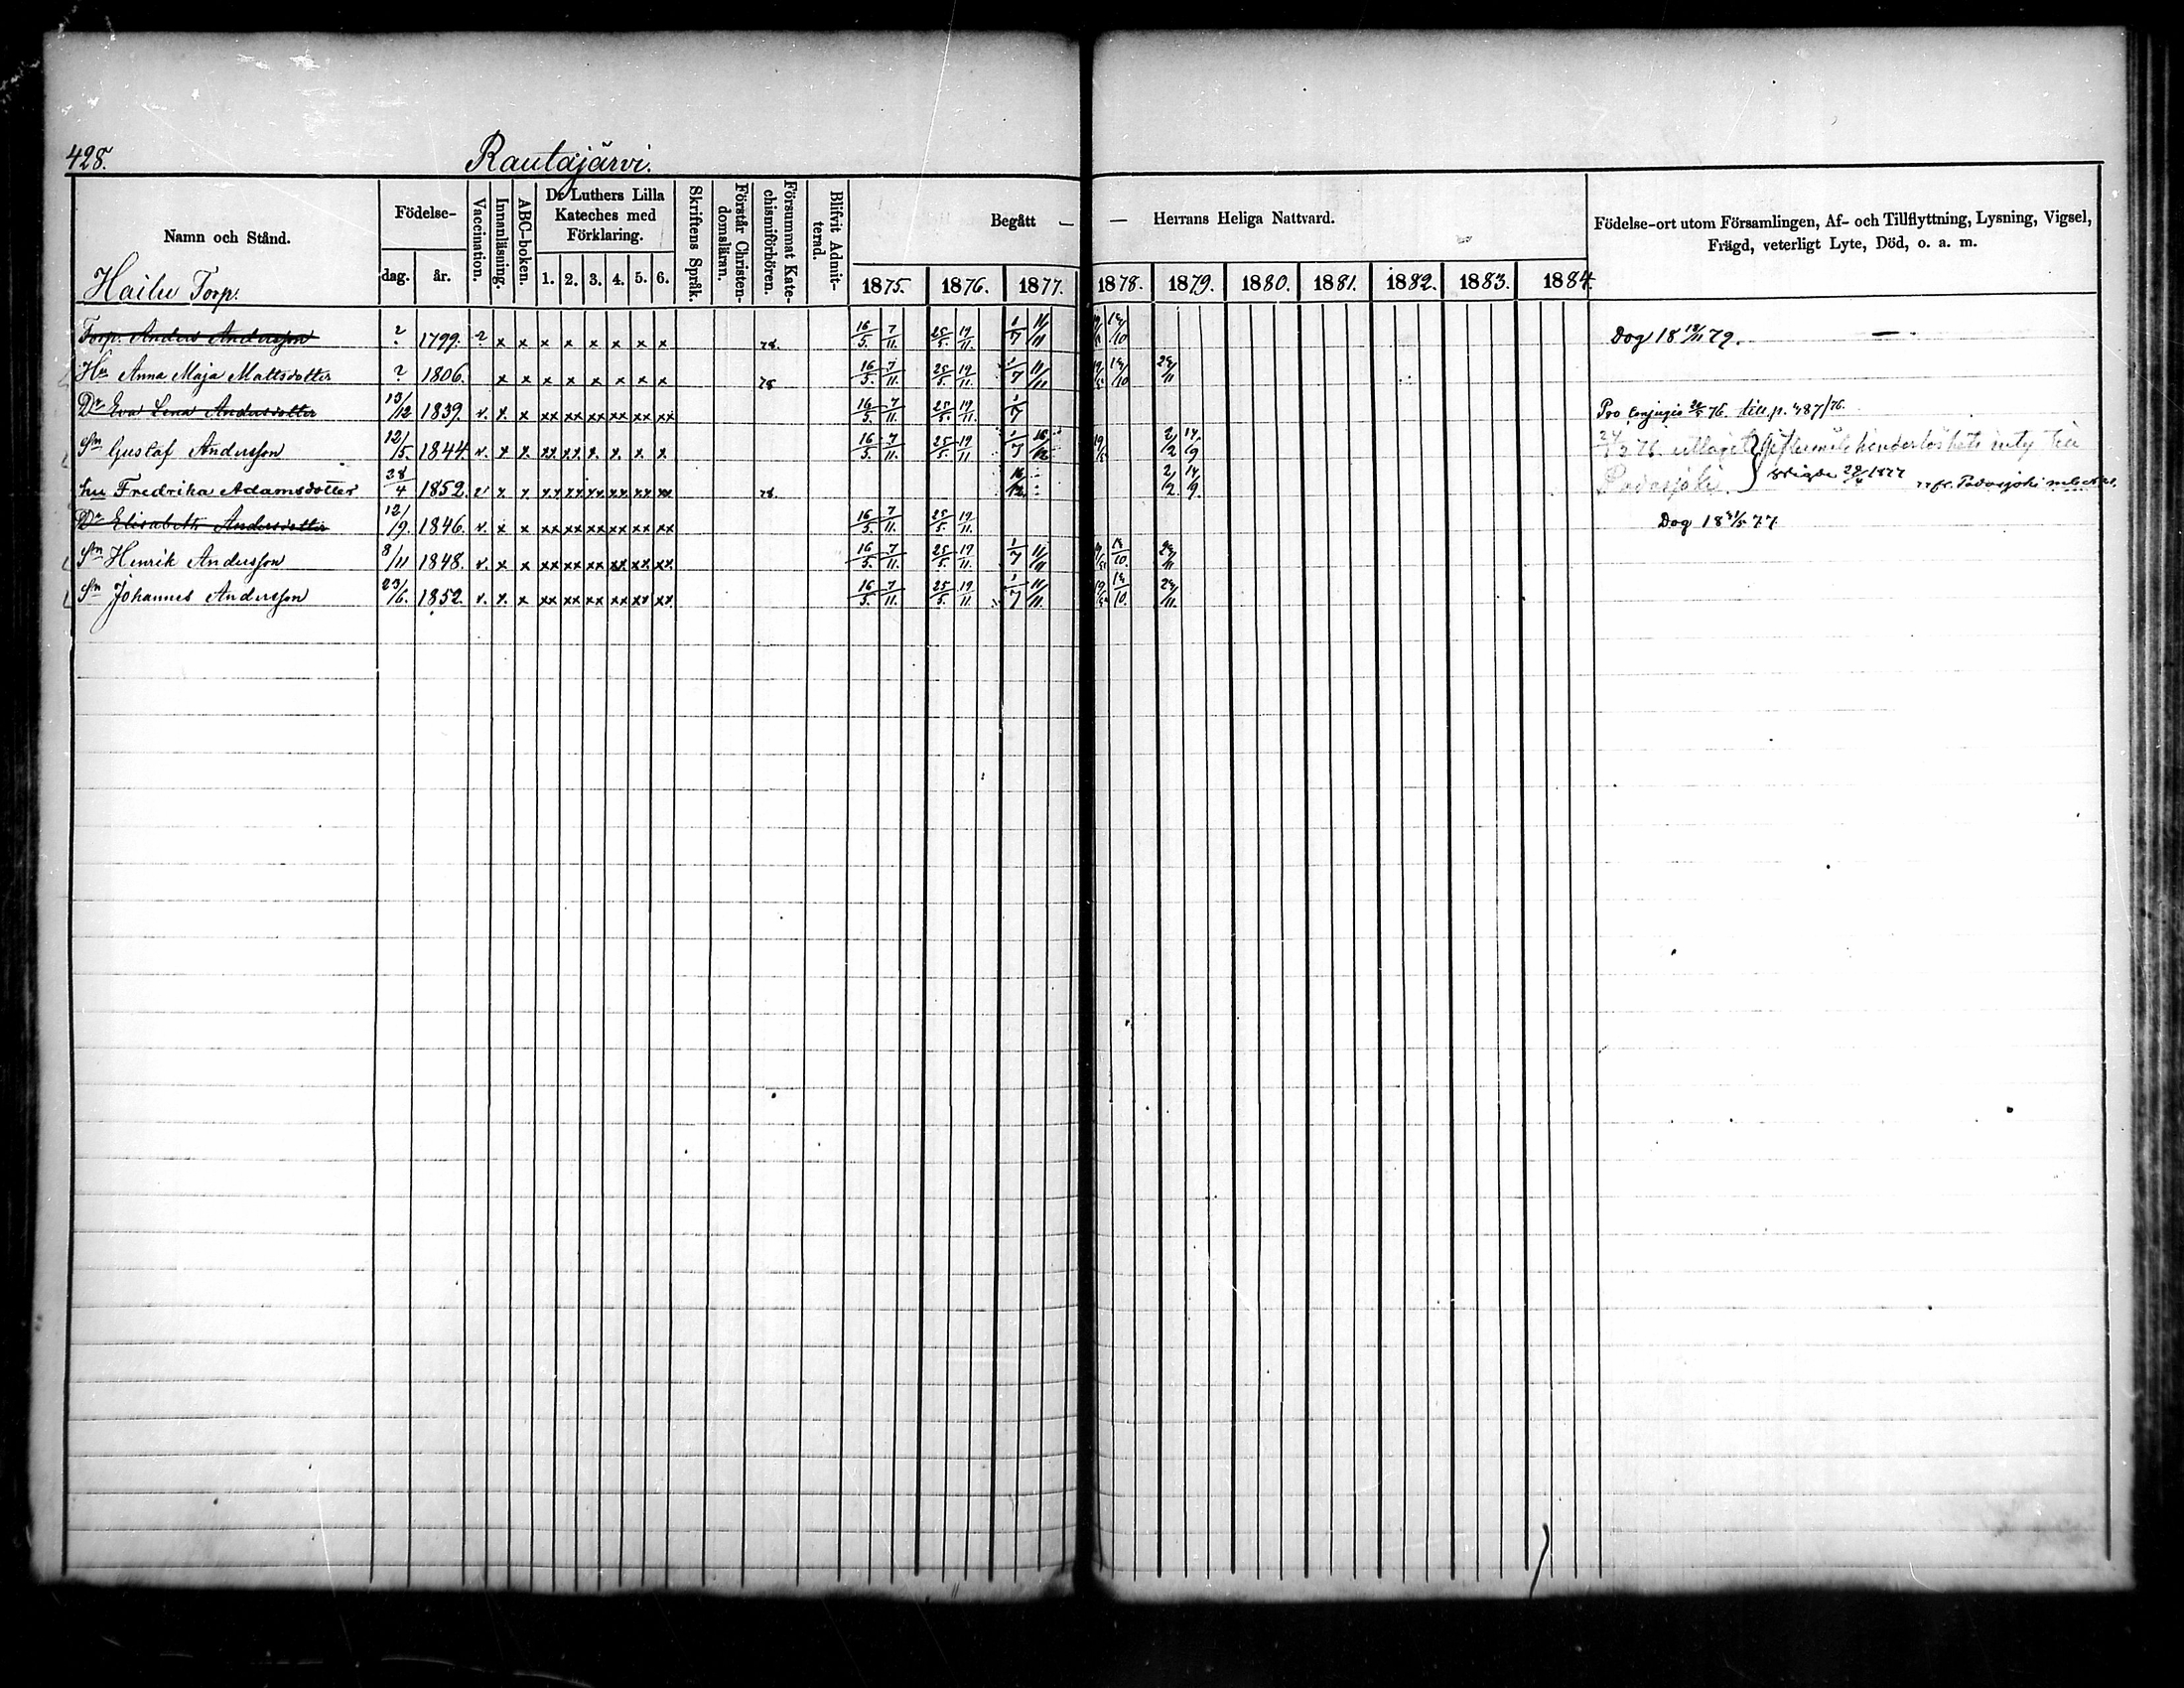 428.
Rautajärvi.
Namn och Stånd.
Födelse-
dag. år.
Vaccination.
Innanläsning.
ABC-boken.
Dr Luthers Lilla Kateches med Förklaring.
1. 2. 3. 4. 5. 6.
Skriftens Språk.
Förstår Christendomsläran.
Försummat Katechismiförhören.
Blifvit Admitterad.
Begått — — Herrans Heliga Nattvard.
1875. 1876. 1877. 1878. 1879. 1880. 1881. 1882. 1883. 1884.
Födelse-ort utom Församlingen, Af- och Tillflyttning, Lysning, Vigsel,
Frägd, veterligt Lyte, Död, o. a. m.
Torp.
Torp. Anders Andersson ? 1799. ? x x x x x x x x 78. 16/5. 7/11. 25/5. 19/11. 1/7 11/11 Dog 18 /11 79.
Hu Anna Maja Mattsdotter ? 1806. x x x x x x x x 78 16/5. 7/11. 25/5. 19/11. 1/7 11/11
Dr Eva Lena Andersdotter 13/12 1839. v. x. x xx xx xx xx xx xx 16/5. 7/11. 25/5. 19/11. 1/7 Pro conjugio 76. till. p. 487/76.
Sn Gustaf Andersson 12/5. 1844. v. x x. xx. xx. x. x. x x 16/5. 7/11. 25/5. 19/11 1/7 16/12 2/2 14/9 76. uttagit
hu Fredrika Adamsdotter 28/4 1852. v x x xx xx xx xx xx xx 78. 16/12. 2/2 14/9. Padasjoki. } Vigde 1877 Padasjoki
Dr Elisabeth Andersdotter 12/9. 1846. v. x x xx xx xx xx xx xx 16/5. 7/11. 25/5. 19/11. Dog 18 /5 77.
Sn Henrik Andersson 8/11 1848. v. x x xx xx xx xx xx xx 16/5. 7/11. 25/5. 19/11. 1/7 11/11
Sn Johannes Andersson 23/6. 1852. v. x. x xx xx xx xx xx xx 16/5. 7/11. 25/5. 19/11. 1/7 11/11.